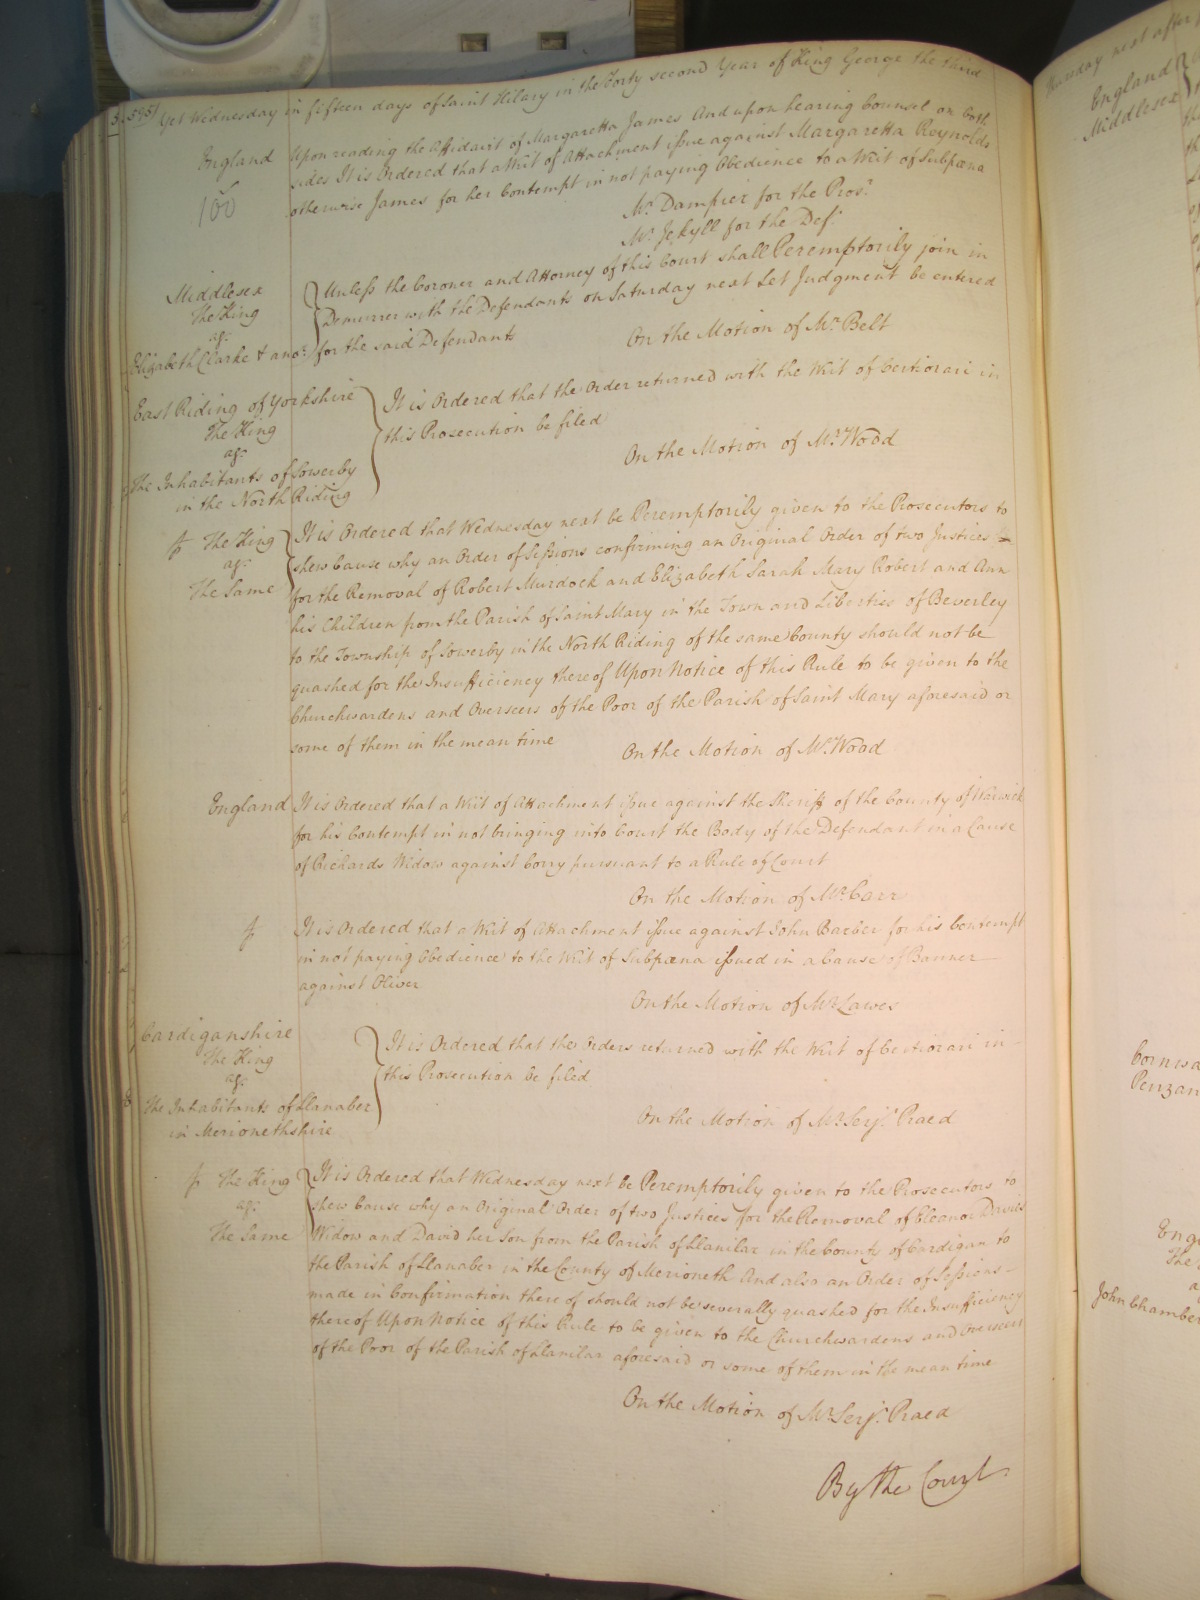 Yet Wednesday in fifteen days of Saint Hilary in the Forty second Year of King George the third
England
100
Upon reading the Affidavit of Margaretta James And upon hearing Counsel on both
sides It is Ordered that a Writ of Attachment issue against Margaretta Reynolds
otherwise James for her Contempt in not paying Obedience to a Writ of Subpœna
Mr. Dampier for the Prosr.
Mr. Jekyll for the Def.
Middlesex
The King
agt.
Elizabeth Clarke & anor.
Unless the Coroner and Attorney of this Court shall Peremptorily join in
Demurrer with the Defendants on Saturday next Let Judgment be entered
for the said Defendants
On the Motion of Mr. Belt
East Riding of Yorkshire
The King
agt.
The Inhabitants of Sowerby
in the North Riding
It is Ordered that the Order returned with the Writ of Certiorari in
this Prosecution be filed
On the Motion of Mr. Wood
The King
agt.
The Same
It is Ordered that Wednesday next be Peremptorily given to the Prosecutors to
shew Cause why an Order of Sessions confirming an Original Order of two Justices
for the Removal of Robert Murdock and Elizabeth Sarah Mary Robert and Ann
his Children from the Parish of Saint Mary in the Town and Liberties of Beverley
to the Township of Sowerby in the North Riding of the same County should not be
quashed for the Insufficiency thereof Upon Notice of this Rule to be given to the
Churchwardens and Overseers of the Poor of the Parish of Saint Mary aforesaid or
some of them in the mean time
On the Motion of Mr. Wood
England
It is Ordered that a Writ of Attachment issue against the Sheriff of the County of Warwick
for his Contempt in not bringing into Court the Body of the Defendant in a Cause
of Richards Widow against Corry pursuant to a Rule of Court
On the Motion of Mr. Carr
It is Ordered that a Writ of Attachment issue against John Barber for his Contempt
in not paying Obedience to the Writ of Subpœna issued in a Cause of Banner
against Oliver
On the Motion of Mr. Lawes
Cardiganshire
The King
agt.
The Inhabitants of Llanaber
in Merionethshire
It is Ordered that the Orders returned with the Writ of Certiorari in
this Prosecution be filed
On the Motion of Mr. Serjt. Praed
The King
agt.
The Same
It is Ordered that Wednesday next be Peremptorily given to the Prosecutors to
shew Cause why an Original Order of two Justices for the Removal of Eleanor Davies
Widow and David her Son from the Parish of Llanilar in the County of Cardigan to
the Parish of Llanaber in the County of Merioneth And also an Order of Sessions
made in Confirmation thereof should not be severally quashed for the Insufficiency
thereof Upon Notice of this Rule to be given to the Churchwardens and Overseers
of the Poor of the Parish of Llanilar aforesaid or some of them in the mean time
On the Motion of Mr. Serjt. Praed
By the Court
next after
England
Middlesex
John Chamber